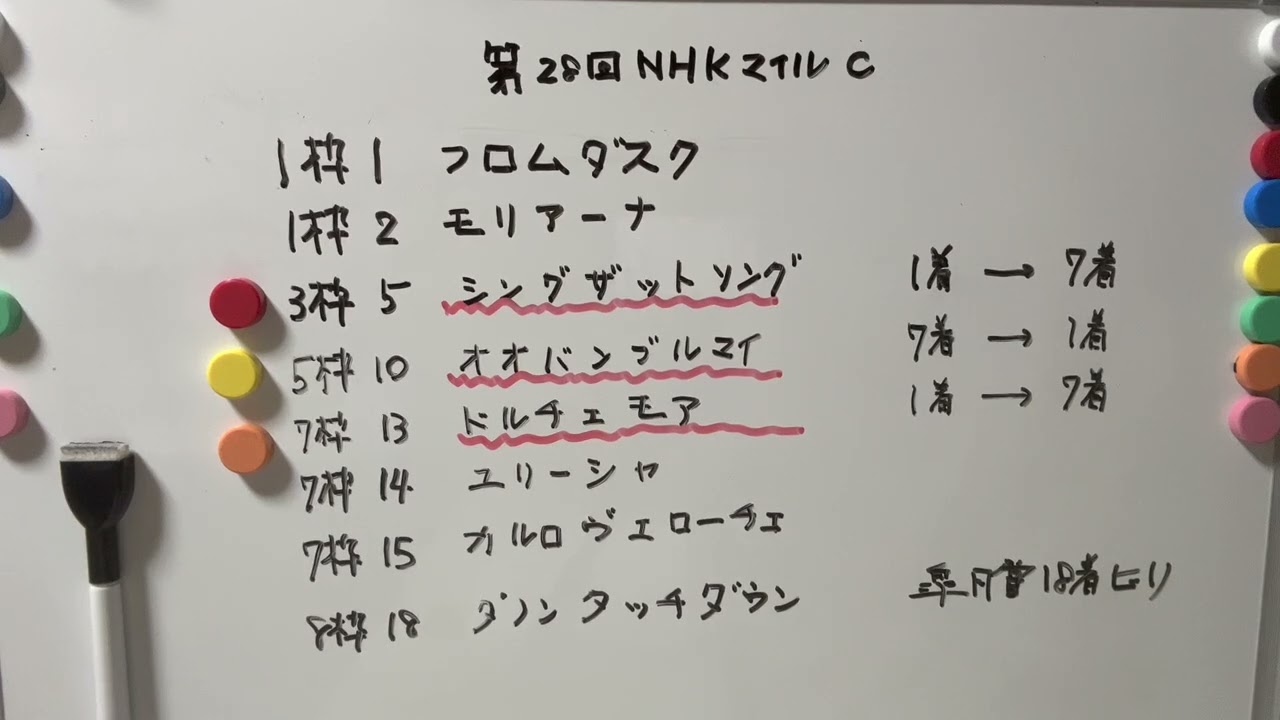 第28回NHKマイルC
1枠1 フロムダスク
1枠2 モリアーナ
3枠5 シングザットソング 1着→7着
5枠10 オオバンブルマイ 7着→1着
7枠13 ドルチェモア 1着→7着
7枠14 ユリーシャ
7枠15 オルロヴェローチェ
8枠18 ダノンタッチダウン 皐月賞18着ビリ